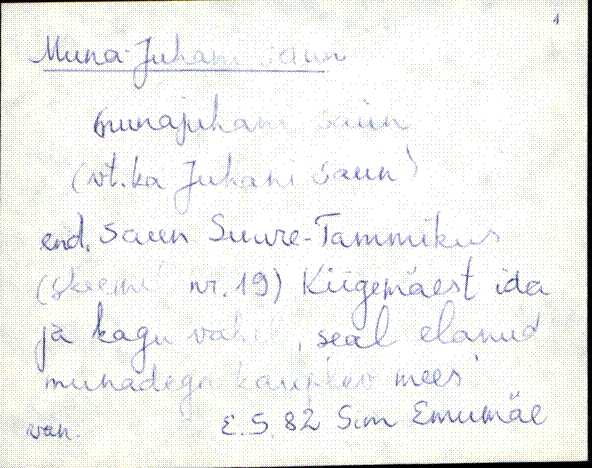 1
Muna-Juhani saun
munajuhani saun
(vt. ka Juhani saun)
end. saun Suure-Tammikus
(skeemi nr. 19) Kiigemäest ida
ja kagu vahel, seal elanud
munadega kauplev mees
van. E.S. 82 Sim Emumäe